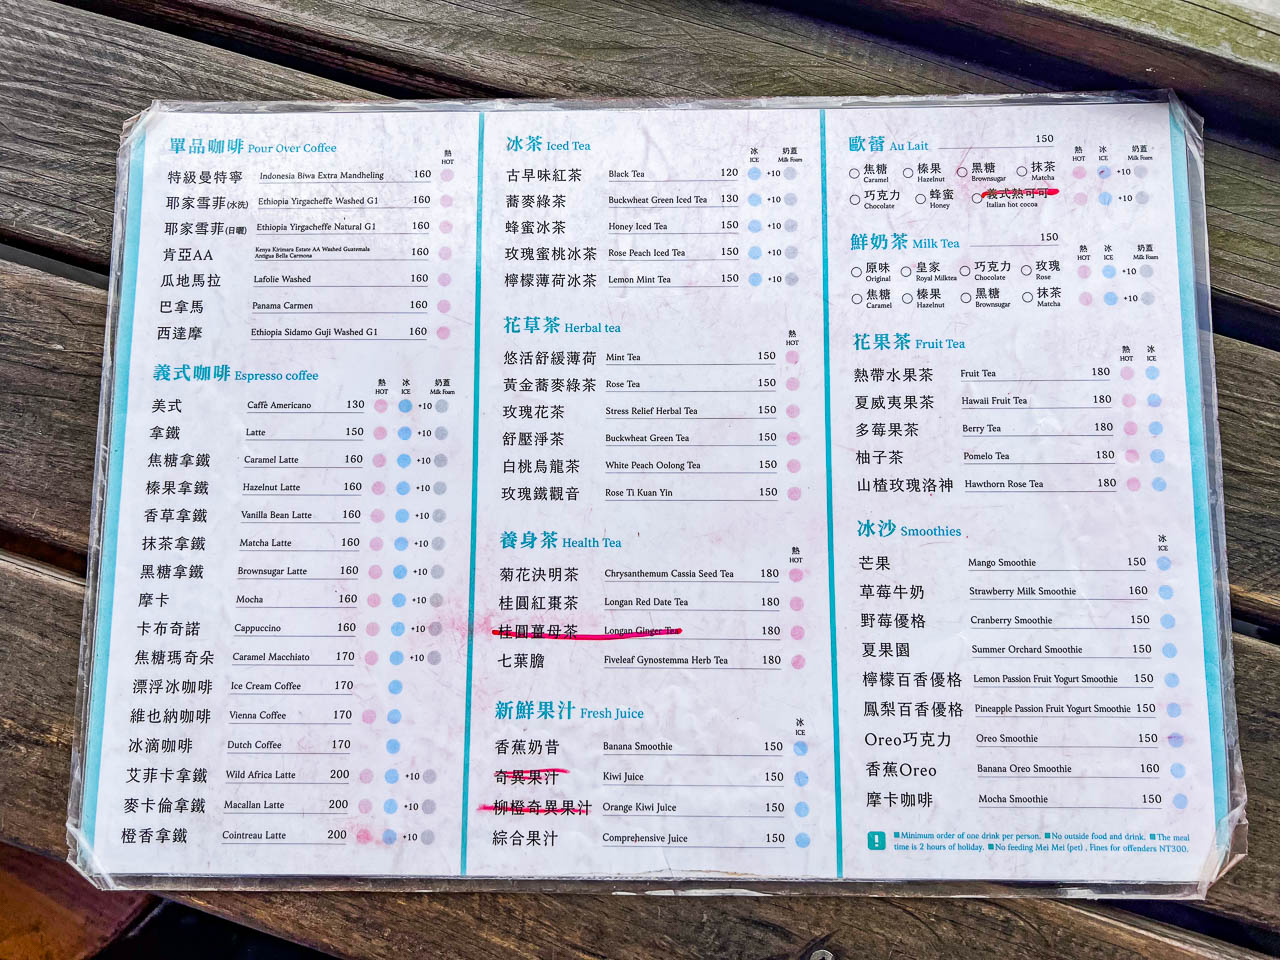 單品咖啡 Pour Over Coffee
熱
HOT
特級曼特寧 Indonesia Biwa Extra Mandheling 160
耶家雪菲(水洗) Ethiopia Yirgacheffe Washed G1 160
耶家雪菲(日曬) Ethiopia Yirgacheffe Natural G1 160
肯亞AA Kenya Kirimara Estate AA Washed Guatemala 160
Antigua Bella Carmona
瓜地馬拉 Lafolie Washed 160
巴拿馬 Panama Carmen 160
西達摩 Ethiopia Sidamo Guji Washed G1 160
義式咖啡 Espresso coffee
熱 冰 奶蓋
HOT ICE Milk Foam
美式 Caffè Americano 130 +10
拿鐵 Latte 150 +10
焦糖拿鐵 Caramel Latte 160 +10
榛果拿鐵 Hazelnut Latte 160 +10
香草拿鐵 Vanilla Bean Latte 160 +10
抹茶拿鐵 Matcha Latte 160 +10
黑糖拿鐵 Brownsugar Latte 160 +10
摩卡 Mocha 160 +10
卡布奇諾 Cappuccino 160 +10
焦糖瑪奇朵 Caramel Macchiato 170 +10
漂浮冰咖啡 Ice Cream Coffee 170
維也納咖啡 Vienna Coffee 170
冰滴咖啡 Dutch Coffee 170
艾菲卡拿鐵 Wild Africa Latte 200 +10
麥卡倫拿鐵 Macallan Latte 200 +10
橙香拿鐵 Cointreau Latte 200 +10
冰茶 Iced Tea
冰 奶蓋
ICE Milk Foam
古早味紅茶 Black Tea 120 +10
蕎麥綠茶 Buckwheat Green Iced Tea 130 +10
蜂蜜冰茶 Honey Iced Tea 150 +10
玫瑰蜜桃冰茶 Rose Peach Iced Tea 150 +10
檸檬薄荷冰茶 Lemon Mint Tea 150 +10
花草茶 Herbal tea
熱
HOT
悠活舒緩薄荷 Mint Tea 150
黃金蕎麥綠茶 Rose Tea 150
玫瑰花茶 Stress Relief Herbal Tea 150
舒壓淨茶 Buckwheat Green Tea 150
白桃烏龍茶 White Peach Oolong Tea 150
玫瑰鐵觀音 Rose Ti Kuan Yin 150
養身茶 Health Tea
熱
HOT
菊花決明茶 Chrysanthemum Cassia Seed Tea 180
桂圓紅棗茶 Longan Red Date Tea 180
桂圓薑母茶 Longan Ginger Tea 180
七葉膽 Fiveleaf Gynostemma Herb Tea 180
新鮮果汁 Fresh Juice
冰
ICE
香蕉奶昔 Banana Smoothie 150
奇異果汁 Kiwi Juice 150
柳橙奇異果汁 Orange Kiwi Juice 150
綜合果汁 Comprehensive Juice 150
歐蕾 Au Lait 150
熱 冰 奶蓋
HOT ICE Milk Foam
焦糖 榛果 黑糖 抹茶 +10
Caramel Hazelnut Brownsugar Matcha
巧克力 蜂蜜 義式熱可可 +10
Chocolate Honey Italian hot cocoa
鮮奶茶 Milk Tea 150
熱 冰 奶蓋
HOT ICE Milk Foam
原味 皇家 巧克力 玫瑰 +10
Original Royal Milktea Chocolate Rose
焦糖 榛果 黑糖 抹茶 +10
Caramel Hazelnut Brownsugar Matcha
花果茶 Fruit Tea
熱 冰
HOT ICE
熱帶水果茶 Fruit Tea 180
夏威夷果茶 Hawaii Fruit Tea 180
多莓果茶 Berry Tea 180
柚子茶 Pomelo Tea 180
山楂玫瑰洛神 Hawthorn Rose Tea 180
冰沙 Smoothies
冰
ICE
芒果 Mango Smoothie 150
草莓牛奶 Strawberry Milk Smoothie 160
野莓優格 Cranberry Smoothie 150
夏果園 Summer Orchard Smoothie 150
檸檬百香優格 Lemon Passion Fruit Yogurt Smoothie 150
鳳梨百香優格 Pineapple Passion Fruit Yogurt Smoothie 150
Oreo巧克力 Oreo Smoothie 150
香蕉Oreo Banana Oreo Smoothie 160
摩卡咖啡 Mocha Smoothie 150
! ■Minimum order of one drink per person. ■No outside food and drink. ■The meal
time is 2 hours of holiday. ■No feeding Mei Mei (pet) , Fines for offenders NT300.